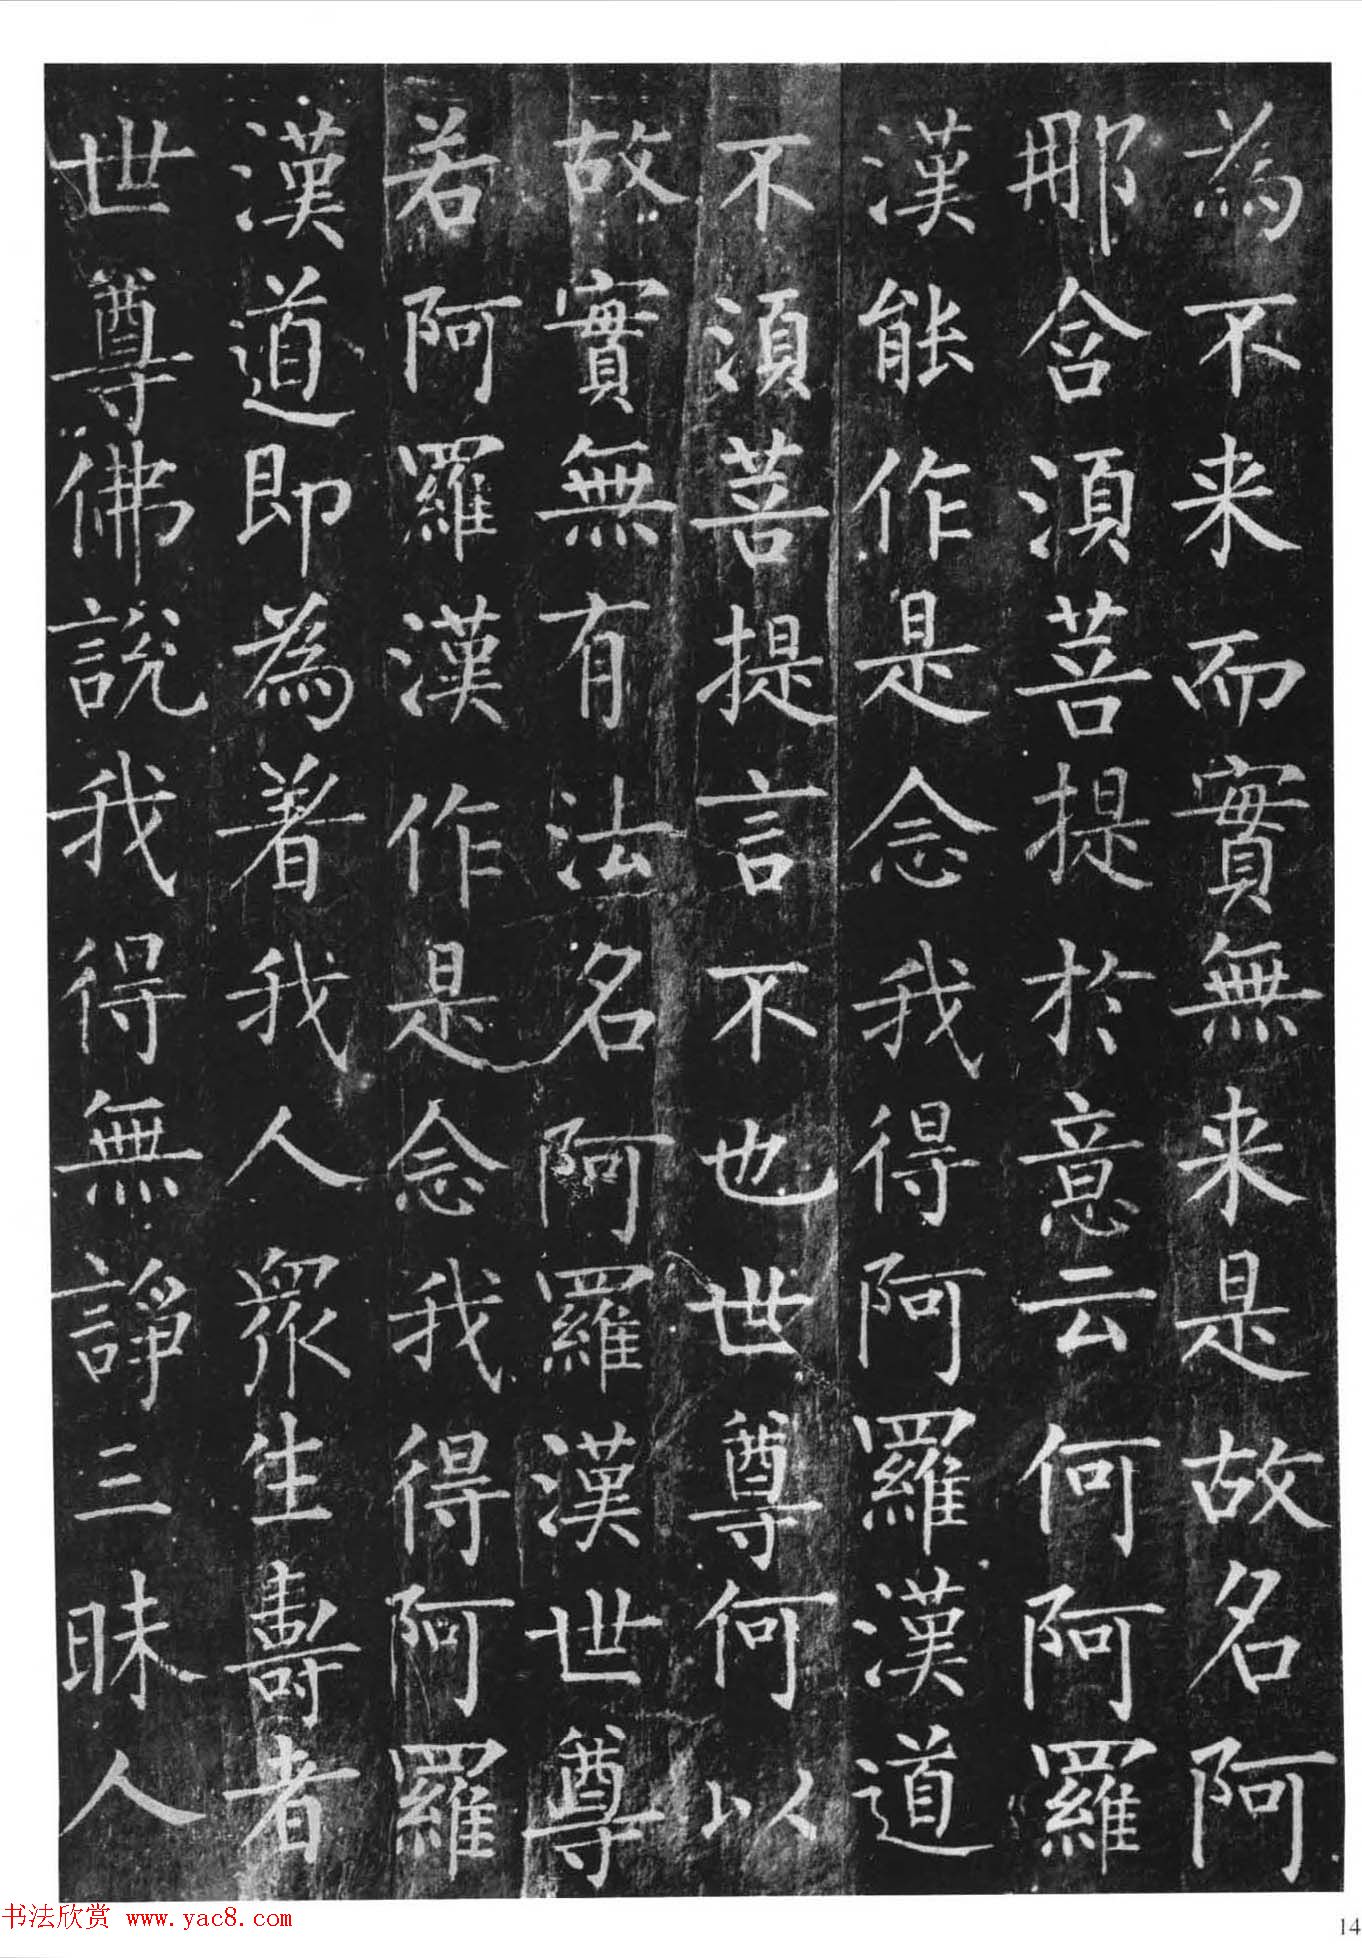 為不来而實無来是故名阿
那含須菩提於意云何阿羅
漢能作是念我得阿羅漢道
不須菩提言不也世尊何以
故實無有法名阿羅漢世尊
若阿羅漢作是念我得阿羅
漢道即為著我人衆生壽者
世尊佛說我得無諍三昧人
书法欣赏 www.yac8.com
14